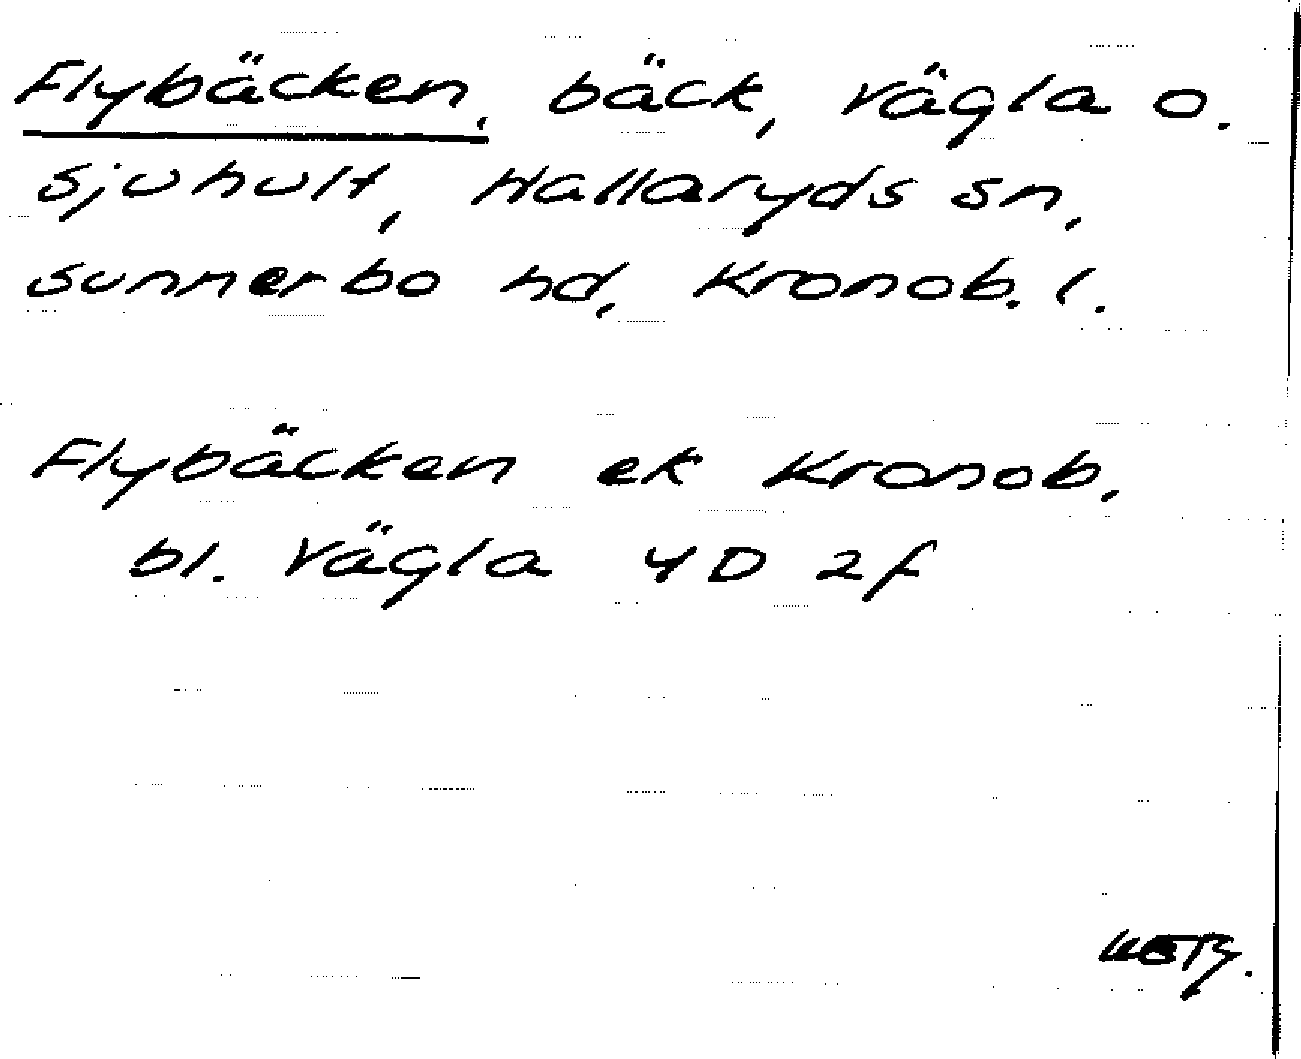 Flybäcken, bäck, Vägla o.
Sjuhult, Hallaryds sn,
Sunnerbo hd, Kronob. l.
Flybäcken ek Kronob.
bl. Vägla 4D 2f